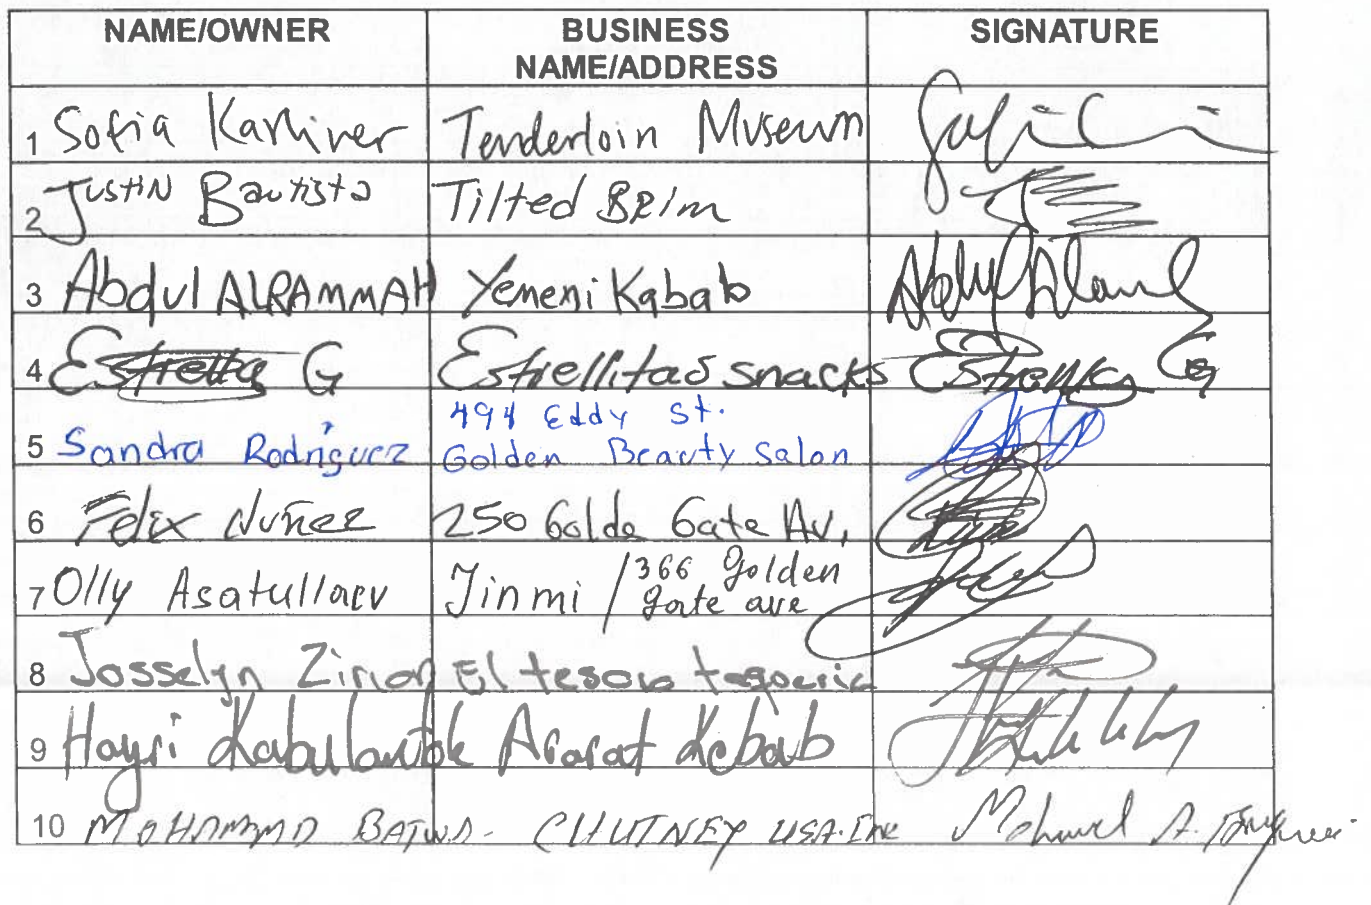 NAME/OWNER
BUSINESS
NAME/ADDRESS
SIGNATURE
1 Sofia Karliner Tenderloin Museum
2 Justin Bautista Tilted BRIm
3 Abdul ALRAMMAH Yemeni Kabab
4 Estrella G Estrellitas snacks Estrella G
494 Eddy St.
5 Sandra Rodriguez Golden Beauty Salon
6 Felix Nuñez 250 Golde Gate Av,
7 Olly Asatullaev Jinmi / 366 Golden
gate ave
8 Josselyn El tesoro taqueria
9 Hayri Ararat Kebab
10 MOHAMMAD CHUTNEY USA. Inc